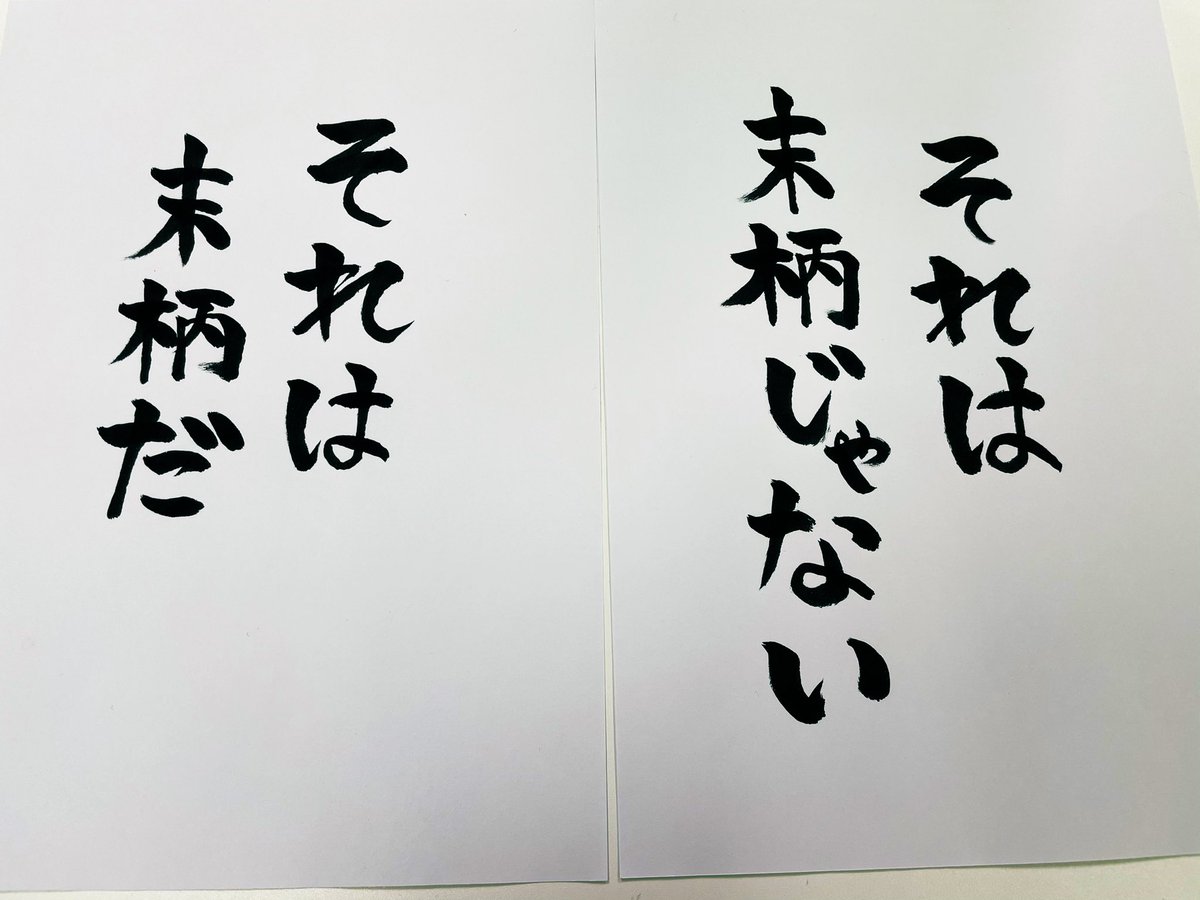 それは
末柄じゃない
それは
末柄だ